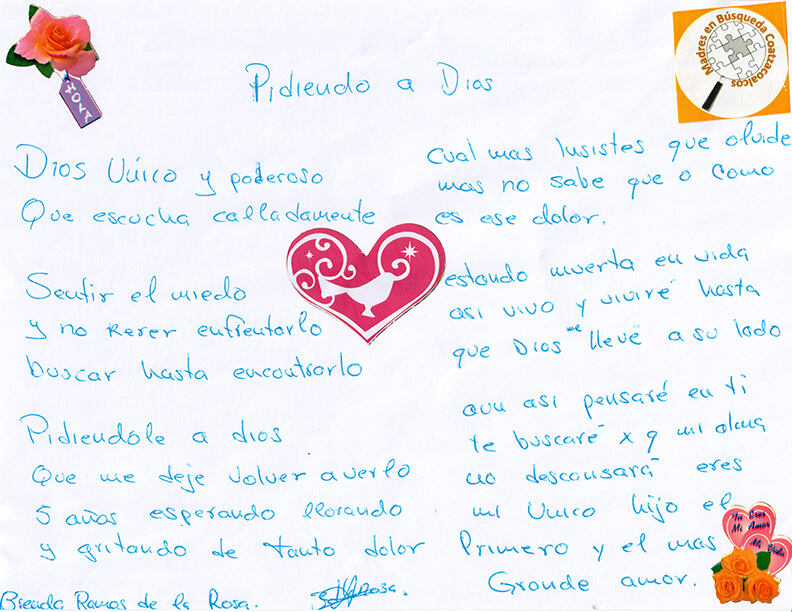 HOLA
Madres en Búsqueda Coatzacoalcos
Pidiendo a Dios
Dios Único y poderoso
Que escucha calladamente
Sentir el miedo
y no Kerer enfrentarlo
buscar hasta encontrarlo
Pidiendole a dios
Que me deje volver a verlo
5 años esperando llorando
y gritando de tanto dolor
Brenda Ramos de la Rosa.
cual mas Insistes que olvide
mas no sabe que o como
es ese dolor.
estando muerta en vida
asi vivo y viviré hasta
que Dios me lleve a su lado
aun asi pensaré en ti
te buscaré x q mi alma
no descansará eres
mi Unico hijo el
Primero y el mas
Grande amor.
Tu Eres
Mi Amor
Mi Vida